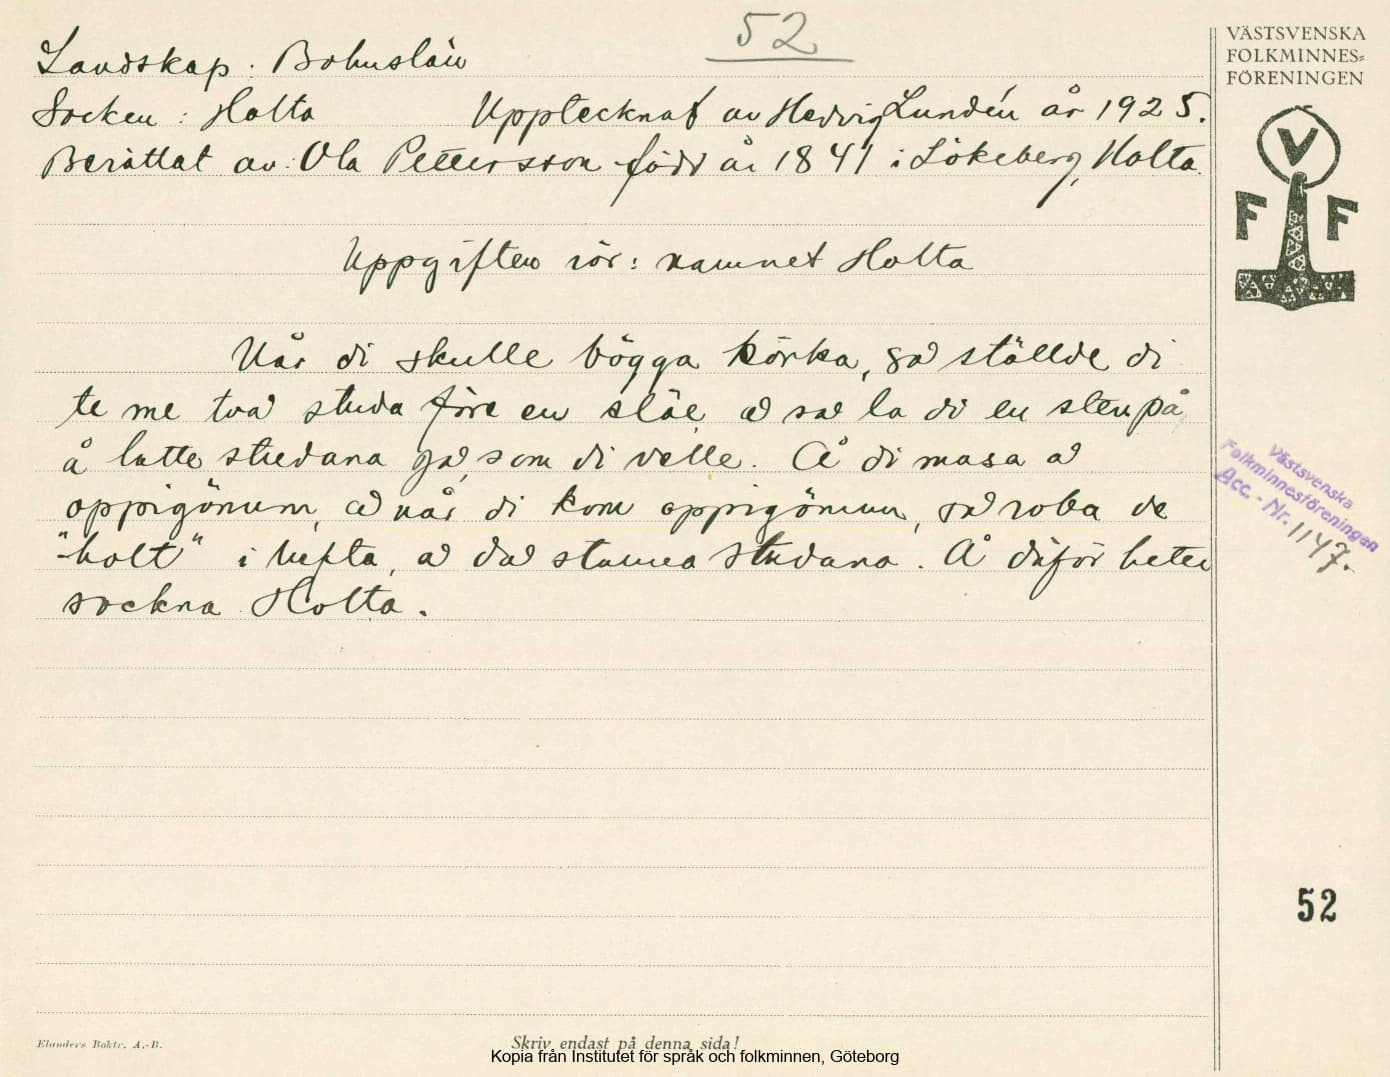 52
VÄSTSVENSKA
FOLKMINNES=
FÖRENINGEN
V
F F
Landskap: Bohuslän
Socken: Holta Upptecknat av Hedvig Lundén år 1925.
Berättat av: Ola Pettersson född år 1841 i Lökeberg, Holta
Uppgiften rör: namnet Holta
Når di skulle bögga körka, så ställde di
te me två studa före en släe, å så la di en sten på,
å lutte studana gå, som di velle. Å di masa å
oppigönum, å når di kom oppigönum, så roba de
"holt" i hefta, å då stanna studana. Å däför heter
sockna Holta.
Västsvenska
Folkminnesföreningen
Acc.-Nr. 1147.
52
Elanders Boktr. A.-B.
Skriv endast på denna sida!
Kopia från Institutet för språk och folkminnen, Göteborg